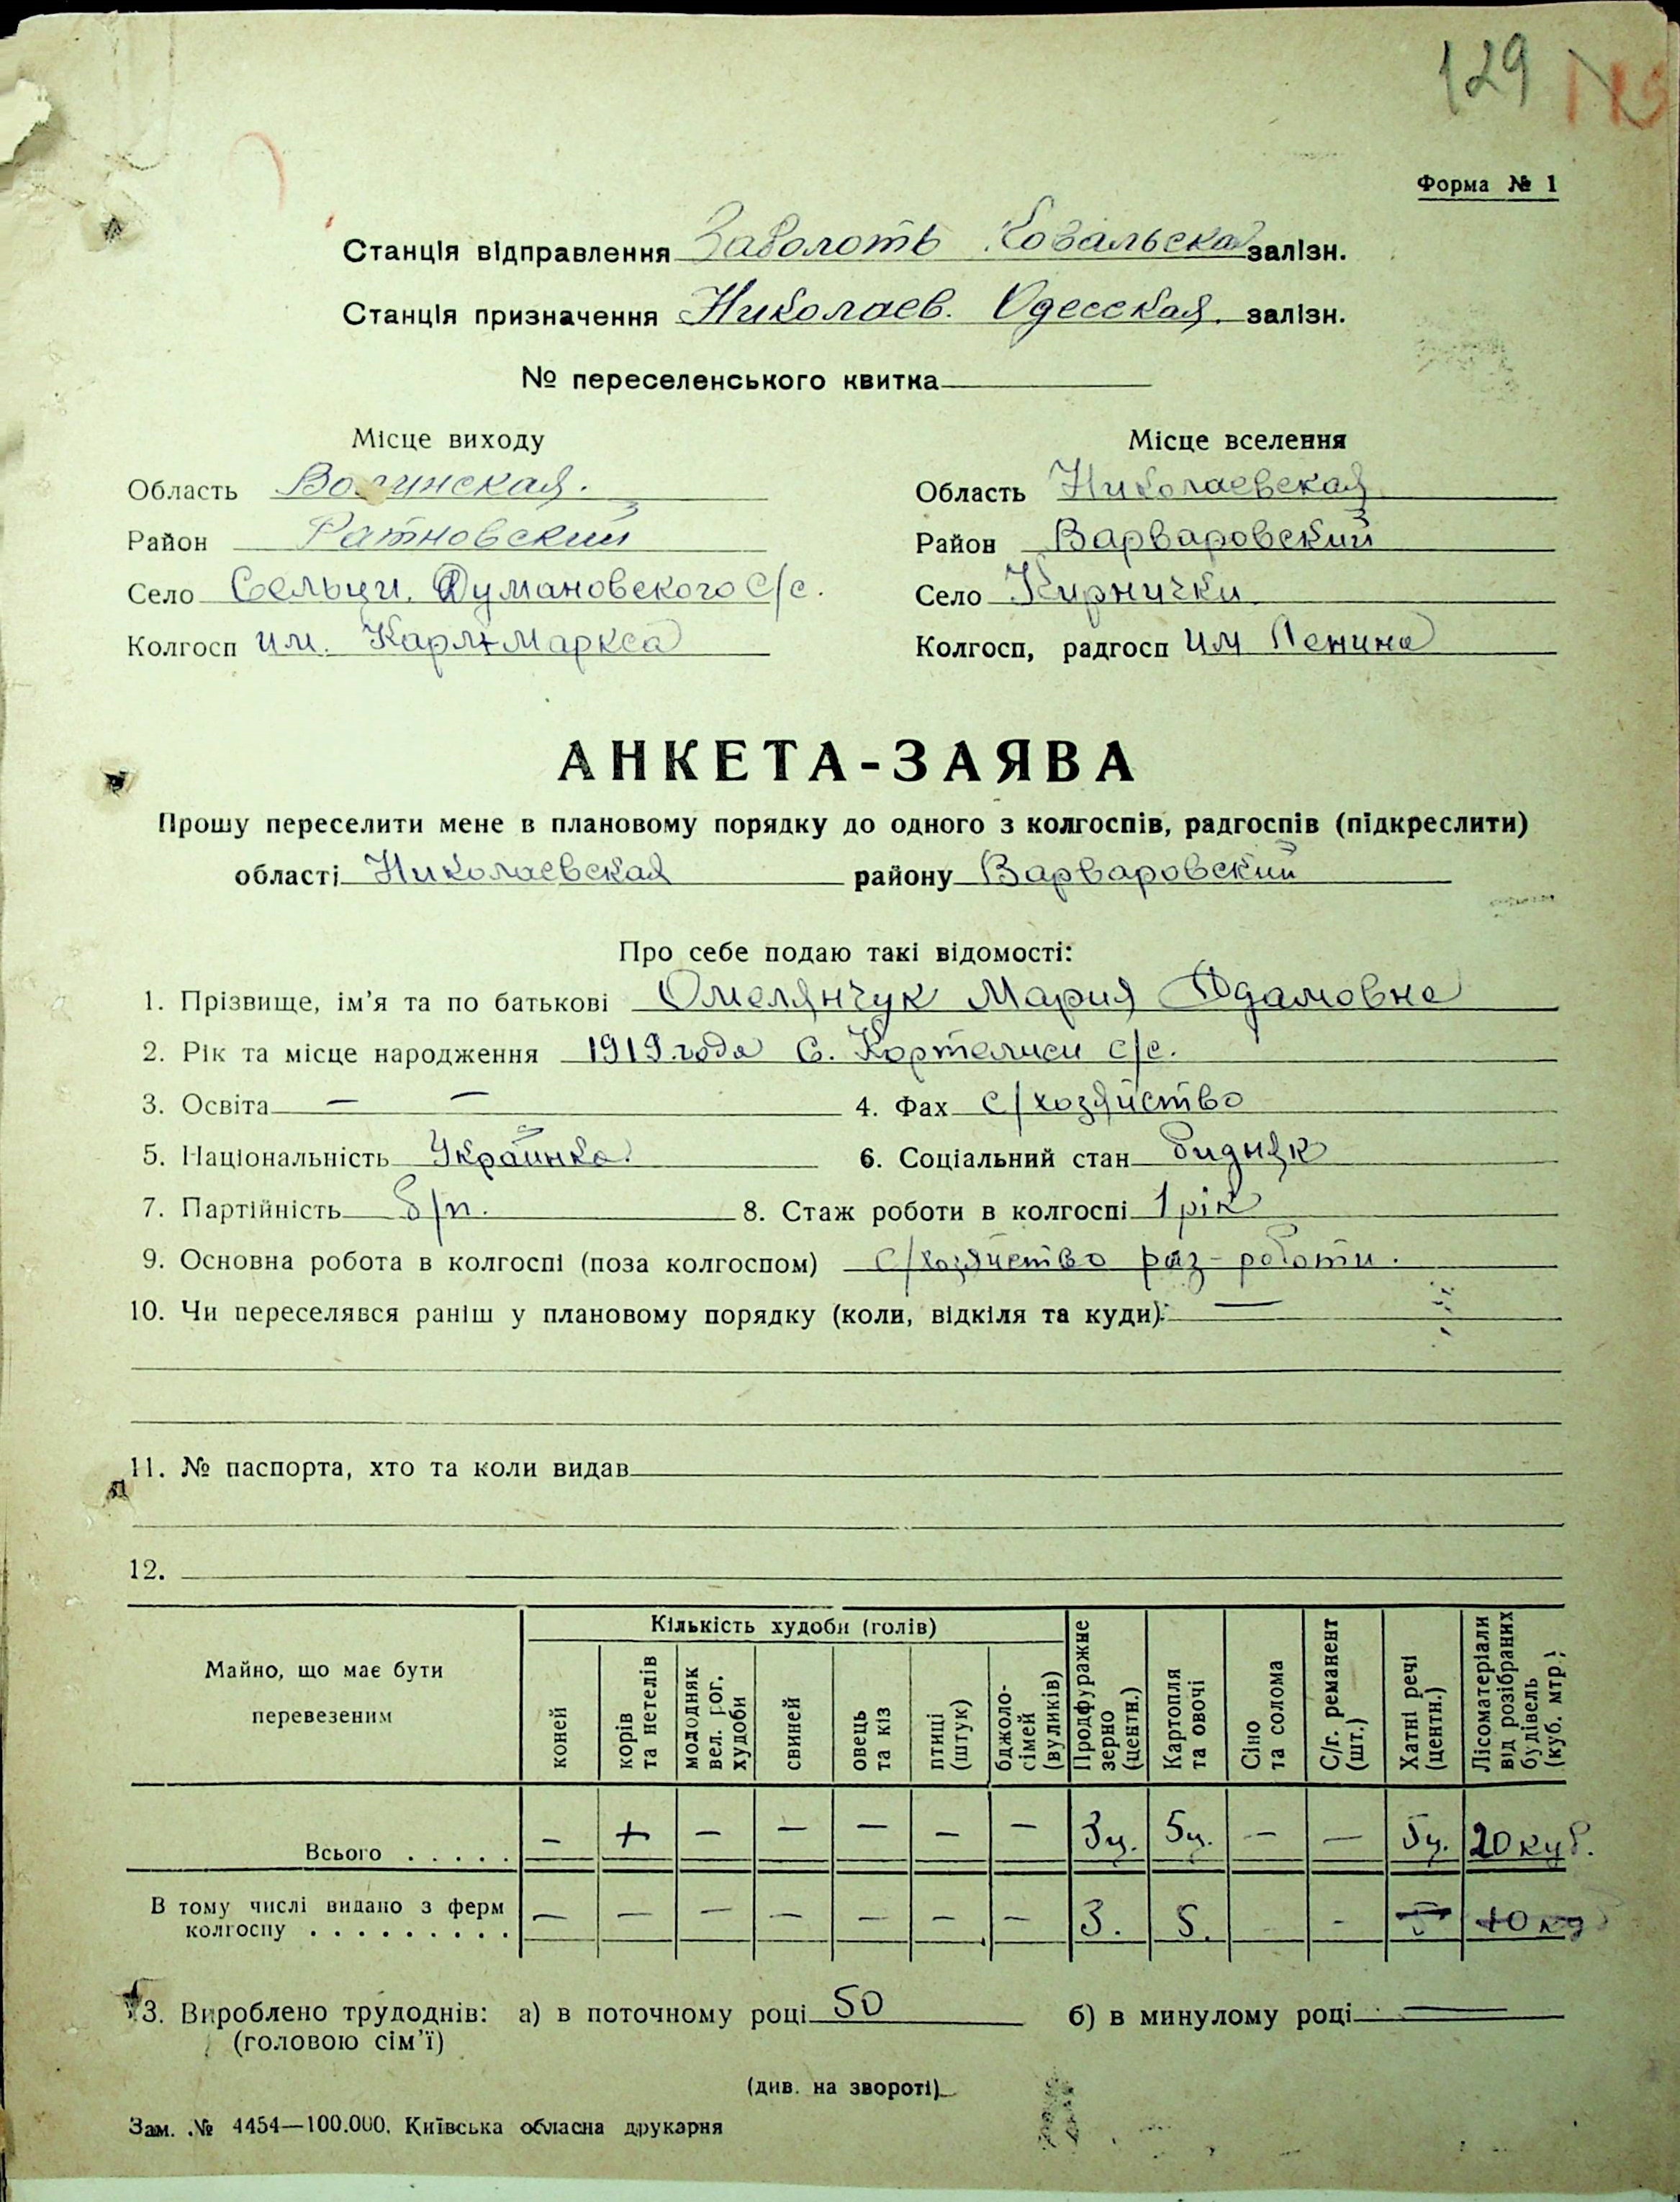 129
Форма № 1
Станція відправлення Заболоть Ковальская залізн.
Станція призначення Николаев. Одесская. залізн.
№ переселенського квитка
Місце виходу Місце вселення
Область Волинская. Область Николаевская
Район Ратновский Район Варваровский
Село Сельци. Думановского с/с. Село Кирнички
Колгосп им. Карл-Маркса Колгосп, радгосп им Ленина
АНКЕТА-ЗАЯВА
Прошу переселити мене в плановому порядку до одного з колгоспів, радгоспів (підкреслити)
області Николаевская району Варваровский
Про себе подаю такі відомості:
1. Прізвище, ім’я та по батькові Омелянчук Мария Адамовна
2. Рік та місце народження 1919 года С. Кортелиси с/с.
3. Освіта — — 4. Фах с/хозяйство
5. Національність Украинка. 6. Соціальний стан бидняк
7. Партійність б/п. 8. Стаж роботи в колгоспі 1 рік
9. Основна робота в колгоспі (поза колгоспом) с/хозяйство раз-работи.
10. Чи переселявся раніш у плановому порядку (коли, відкіля та куди): —
11. № паспорта, хто та коли видав
12.
Майно, що має бути перевезеним
Кількість худоби (голів)
коней
корів та нетелів
молодняк вел. рог. худоби
свиней
овець та кіз
птиці (штук)
бджоло-сімей (вуликів)
Продфуражне зерно (центн.)
Картопля та овочі
Сіно та солома
С/г. реманент (шт.)
Хатні речі (центн.)
Лісоматеріали від розібраних будівель (куб. мтр.)
Всього . . . . . — + — — — — — 3ц. 5ц. — — 5ц. 20 куб.
В тому числі видано з ферм
колгоспу . . . . . . . . . — — — — — — — 3. 5. - - 5 10 куб
13. Вироблено трудоднів: а) в поточному році 50 б) в минулому році —
(головою сім’ї)
(див. на звороті)
Зам. № 4454—100.000. Київська обласна друкарня